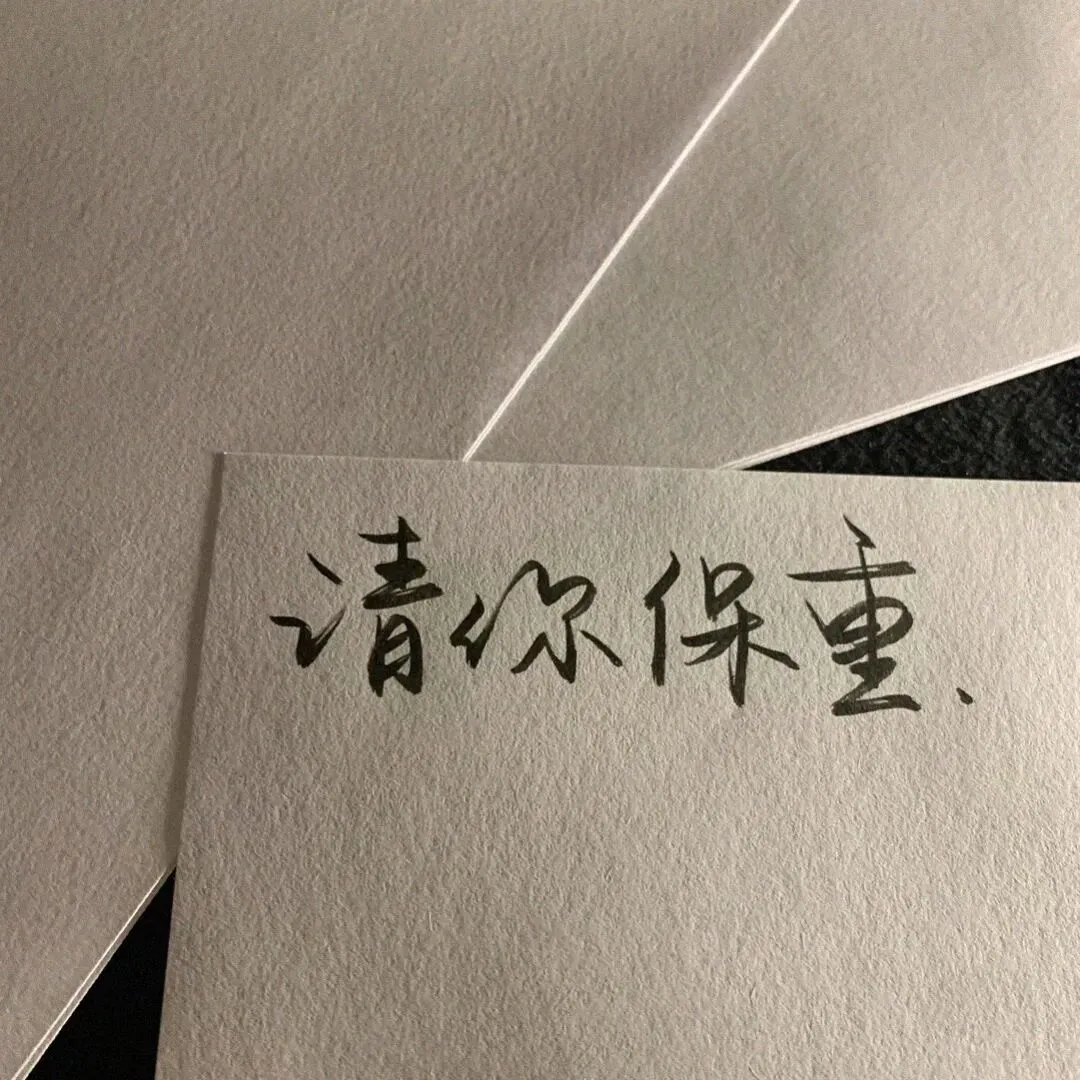 请你保重.